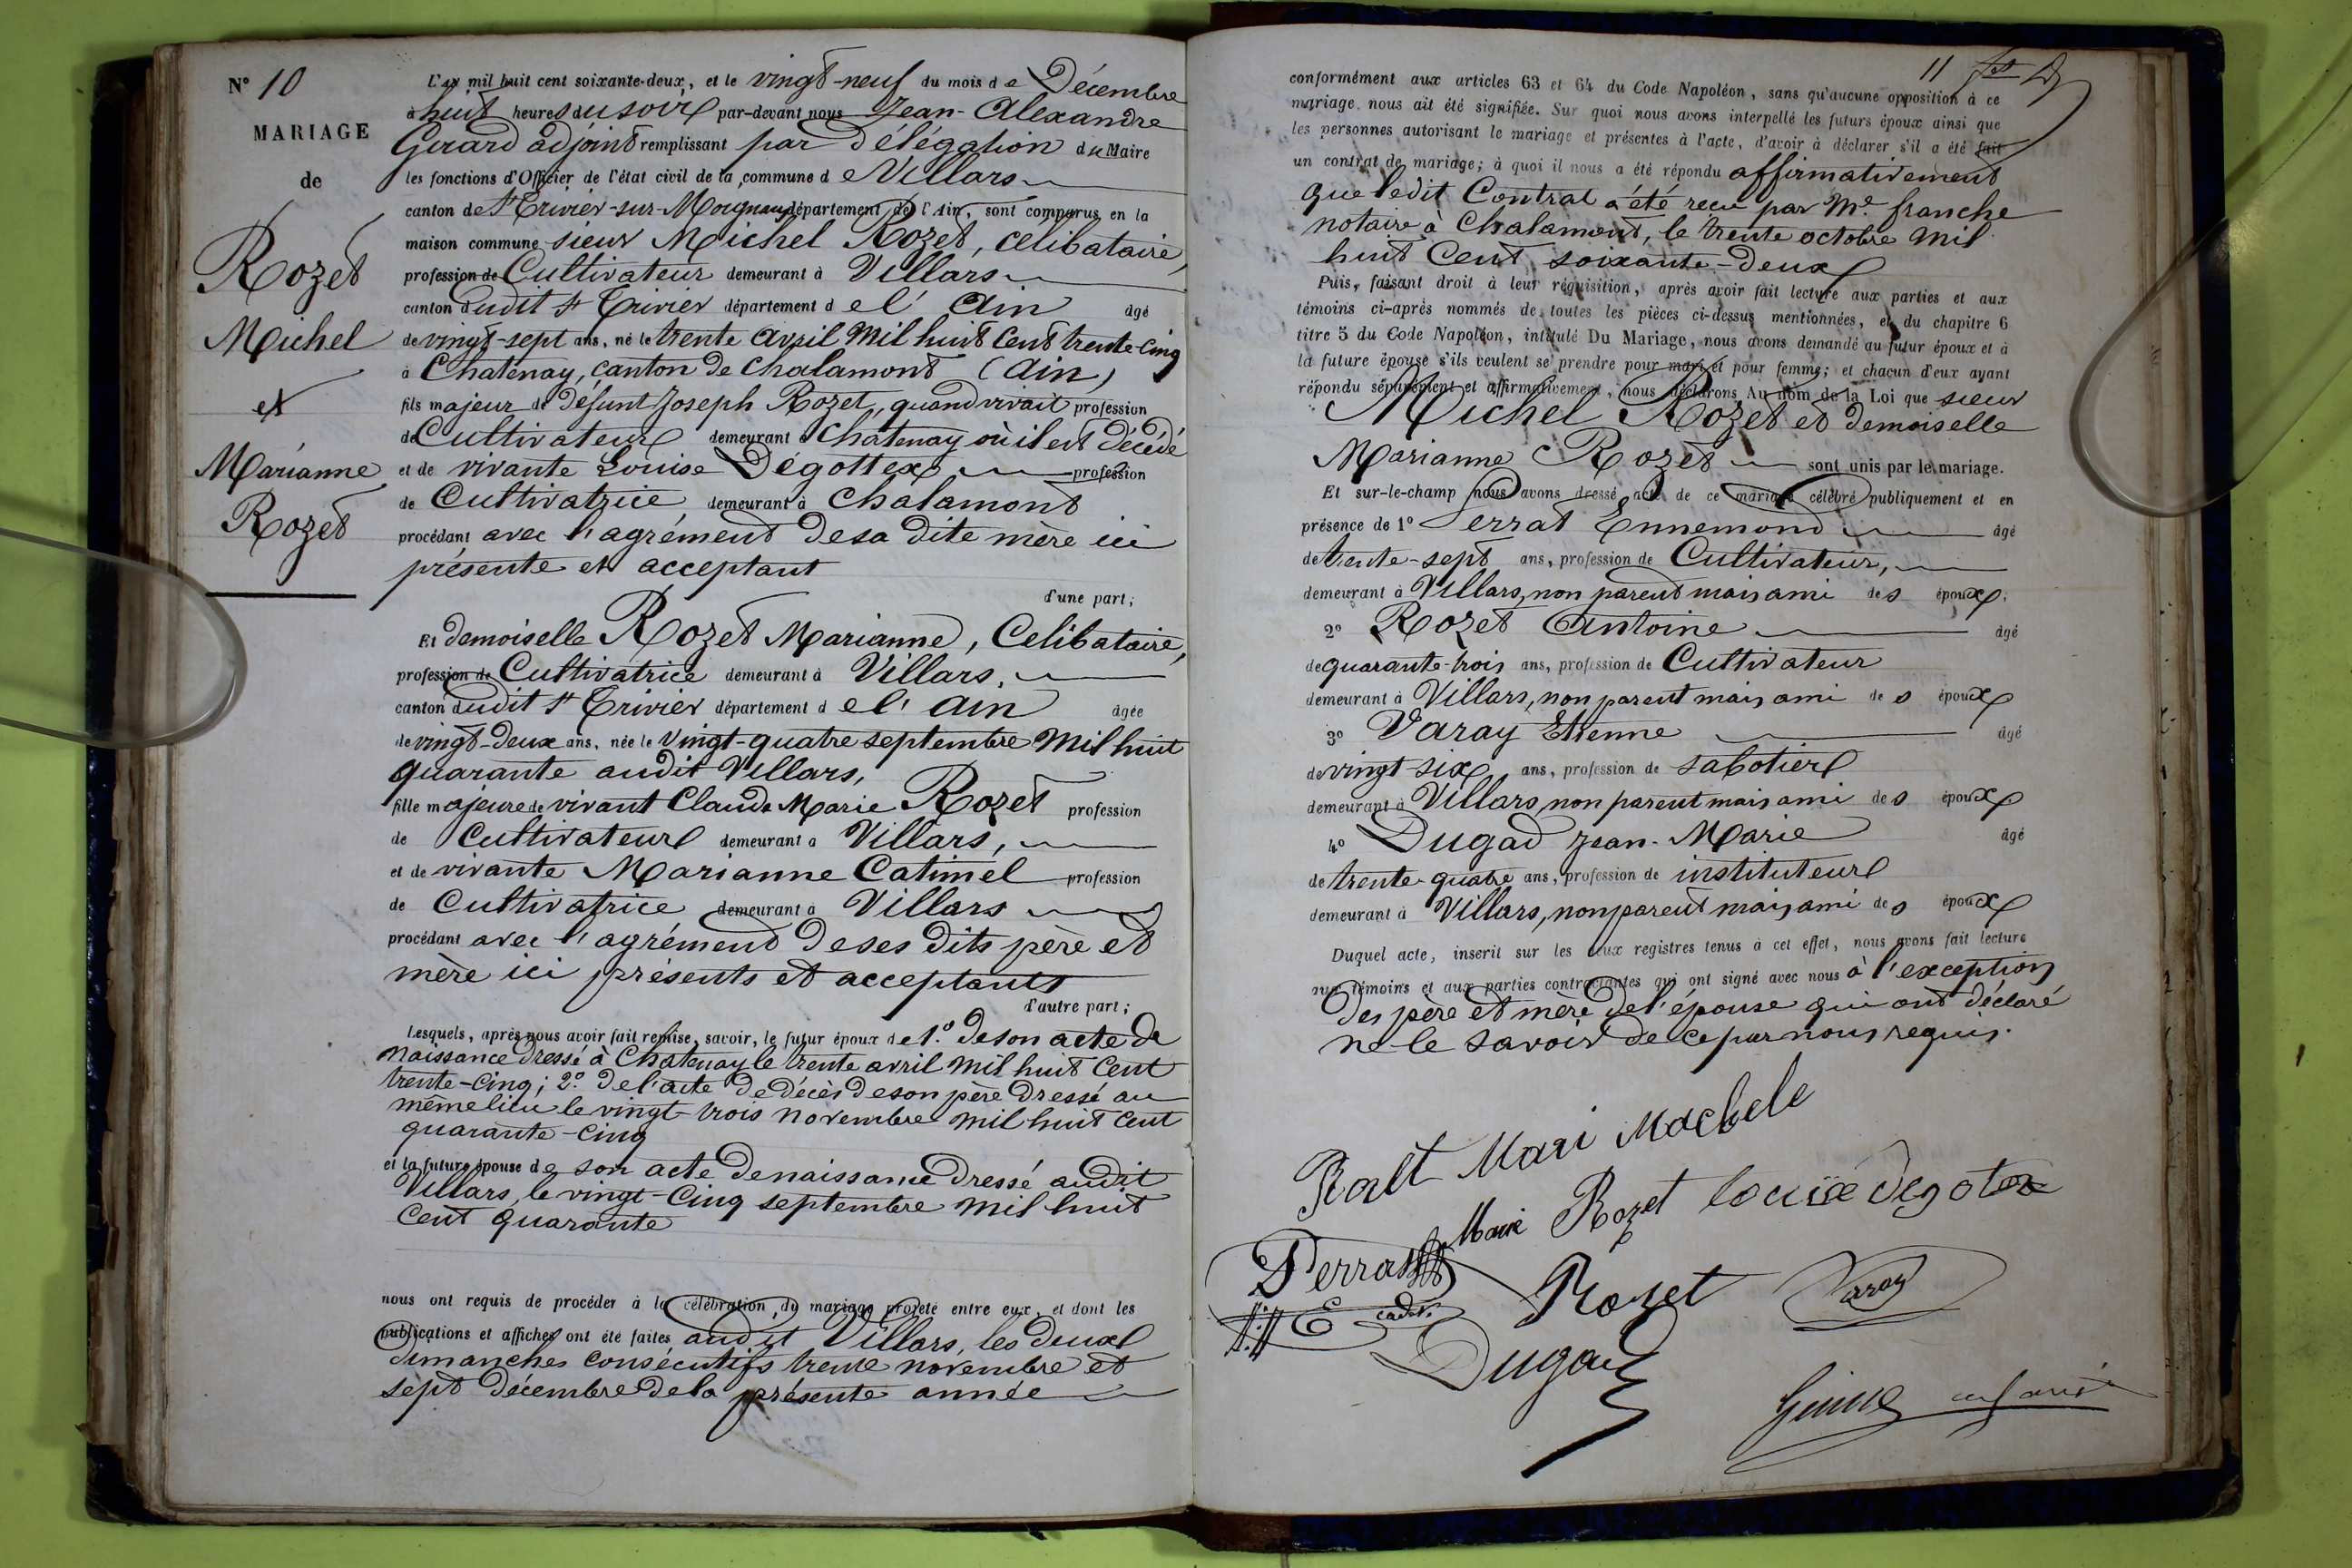 N° 10
MARIAGE
de
Rozet
Michel
et
Marianne
Rozet
L'an mil huit cent soixante-deux, et le vingt-neuf du mois de Décembre
à huit heures du soir par-devant nous Jean-Alexandre
Gerard adjoint remplissant par délégation du Maire
les fonctions d'Officier de l'état civil de la commune de Villars
canton de St Trivier-sur-Moignans département de l'Ain, sont comparus en la
maison commune sieur Michel Rozet, célibataire,
profession de Cultivateur demeurant à Villars
canton dudit St Trivier département de l'Ain âgé
de vingt-sept ans, né le trente avril mil huit cent trente-cinq
à Chatenay, canton de Chalamont (Ain)
fils majeur de défunt Joseph Rozet, quand vivait profession
de Cultivateur demeurant à Chatenay où il est décédé
et de vivante Louise Dégottex profession
de Cultivatrice demeurant à Chalamont
procédant avec l'agrément de sa dite mère ici
présente et acceptant
d'une part;
Et demoiselle Rozet Marianne, Celibataire,
profession de Cultivatrice demeurant à Villars,
canton dudit St Trivier département de l'Ain âgée
de vingt-deux ans, née le vingt-quatre septembre mil huit
quarante audit Villars,
fille majeure de vivant Claude Marie Rozet profession
de Cultivateur demeurant à Villars,
et de vivante Marianne Catimel profession
de Cultivatrice demeurant à Villars
procédant avec l'agrément de ses dits père et
mère ici présents et acceptants
d'autre part;
Lesquels, après nous avoir fait remise, savoir, le futur époux de 1.° de son acte de
naissance dressé à Chatenay le trente avril mil huit cent
trente-cinq; 2.° de l'acte de décès de son père dressé au
même lieu le vingt-trois novembre mil huit cent
quarante-cinq
et la future épouse de son acte de naissance dressé audit
Villars, le vingt-cinq septembre mil huit
cent quarante
nous ont requis de procéder à la célébration du mariage projeté entre eux, et dont les
publications et affiches ont été faites audit Villars, les deux
dimanches consécutifs trente novembre et
sept décembre de la présente année
11
conformément aux articles 63 et 64 du Code Napoléon, sans qu'aucune opposition à ce
mariage nous ait été signifiée. Sur quoi nous avons interpellé les futurs époux ainsi que
les personnes autorisant le mariage et présentes à l'acte, d'avoir à déclarer s'il a été fait
un contrat de mariage; à quoi il nous a été répondu affirmativement
que ledit Contrat a été reçu par Me franche
notaire à Chalamont, le trente octobre mil
huit cent soixante-deux
Puis, faisant droit à leur réquisition, après avoir fait lecture aux parties et aux
témoins ci-après nommés de toutes les pièces ci-dessus mentionnées, et du chapitre 6
titre 5 du Code Napoléon, intitulé Du Mariage, nous avons demandé au futur époux et à
la future épouse s'ils veulent se prendre pour mari et pour femme; et chacun d'eux ayant
répondu séparément et affirmativement, nous déclarons, Au nom de la Loi que sieur
Michel Rozet et demoiselle
Marianne Rozet sont unis par le mariage.
Et sur-le-champ nous avons dressé acte de ce mariage célébré publiquement et en
présence de 1° Perrat Ennemond âgé
de trente-sept ans, profession de Cultivateur,
demeurant à Villars, non parent mais ami des époux;
2° Rozet Antoine âgé
de quarante-trois ans, profession de Cultivateur
demeurant à Villars, non parent mais ami des époux
3° Varay Etienne âgé
de vingt-six ans, profession de sabotier
demeurant à Villars, non parent mais ami des époux
4° Dugad Jean-Marie âgé
de trente-quatre ans, profession de instituteur
demeurant à Villars, non parent mais ami des époux
Duquel acte, inscrit sur les deux registres tenus à cet effet, nous avons fait lecture
aux témoins et aux parties contractantes qui ont signé avec nous à l'exception
des père et mère de l'épouse qui ont déclaré
ne le savoir de ce par nous requis.
Mari
Marie Rozet louise degotex
Perrat
E cadet.
Rozet
Varay
Dugad